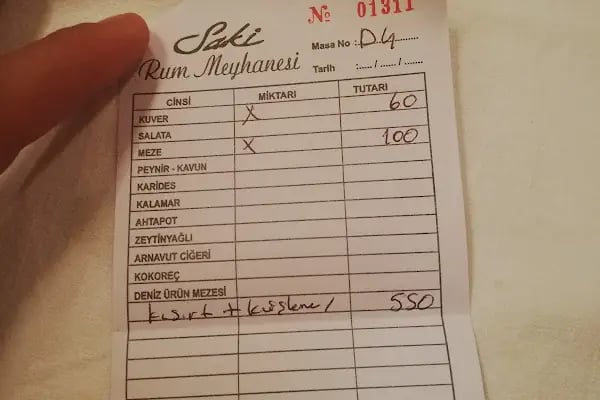 Saki
Rum Meyhanesi
№ 01311
Masa No : D4
Tarih :..... / ...... / .......
CİNSİ MİKTARI TUTARI
KUVER X 60
SALATA
MEZE X 100
PEYNİR - KAVUN
KARİDES
KALAMAR
AHTAPOT
ZEYTİNYAĞLI
ARNAVUT CİĞERİ
KOKOREÇ
DENİZ ÜRÜN MEZESİ
+ 550